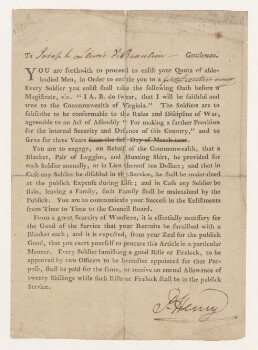 To Joseph Lewis Gentleman.
YOU are forthwith to proceed to enlist your Quota of able-
bodied Men, in Order to entitle you to a
Every Soldier you enlist shall take the following Oath before a
Magistrate, viz. " I A. B. do swear, that I will be faithful and
true to the Commonwealth of Virginia." The Soldiers are to
subscribe to be conformable to the Rules and Discipline of War,
agreeable to an Act of Assembly " For making a farther Provision
for the internal Security and Defence of this Country," and to
serve for three Years from the Day of March next.
You are to engage, on Behalf of the Commonwealth, that a
Blanket, Pair of Leggins, and Hunting Shirt, be provided for
each Soldier annually, or in Lieu thereof ten Dollars; and that in
Case any Soldier be disabled in the Service, he shall be maintained
at the publick Expense during Life; and in Case any Soldier be
slain, leaving a Family, such Family shall be maintained by the
Publick. You are to communicate your Success in the Enlistments
from Time to Time to the Council Board.
From a great Scarcity of Woollens, it is essentially necessary for
the Good of the Service that your Recruits be furnished with a
Blanket each; and it is expected, from your Zeal for the publick
Good, that you exert yourself to procure this Article in a particular
Manner. Every Soldier furnishing a good Rifle or Firelock, to be
approved by two Officers to be hereafter appointed for that Pur-
pose, shall be paid for the same, or receive an annual Allowance of
twenty Shillings while such Rifle or Firelock shall be in the publick
Service.
P. Henry